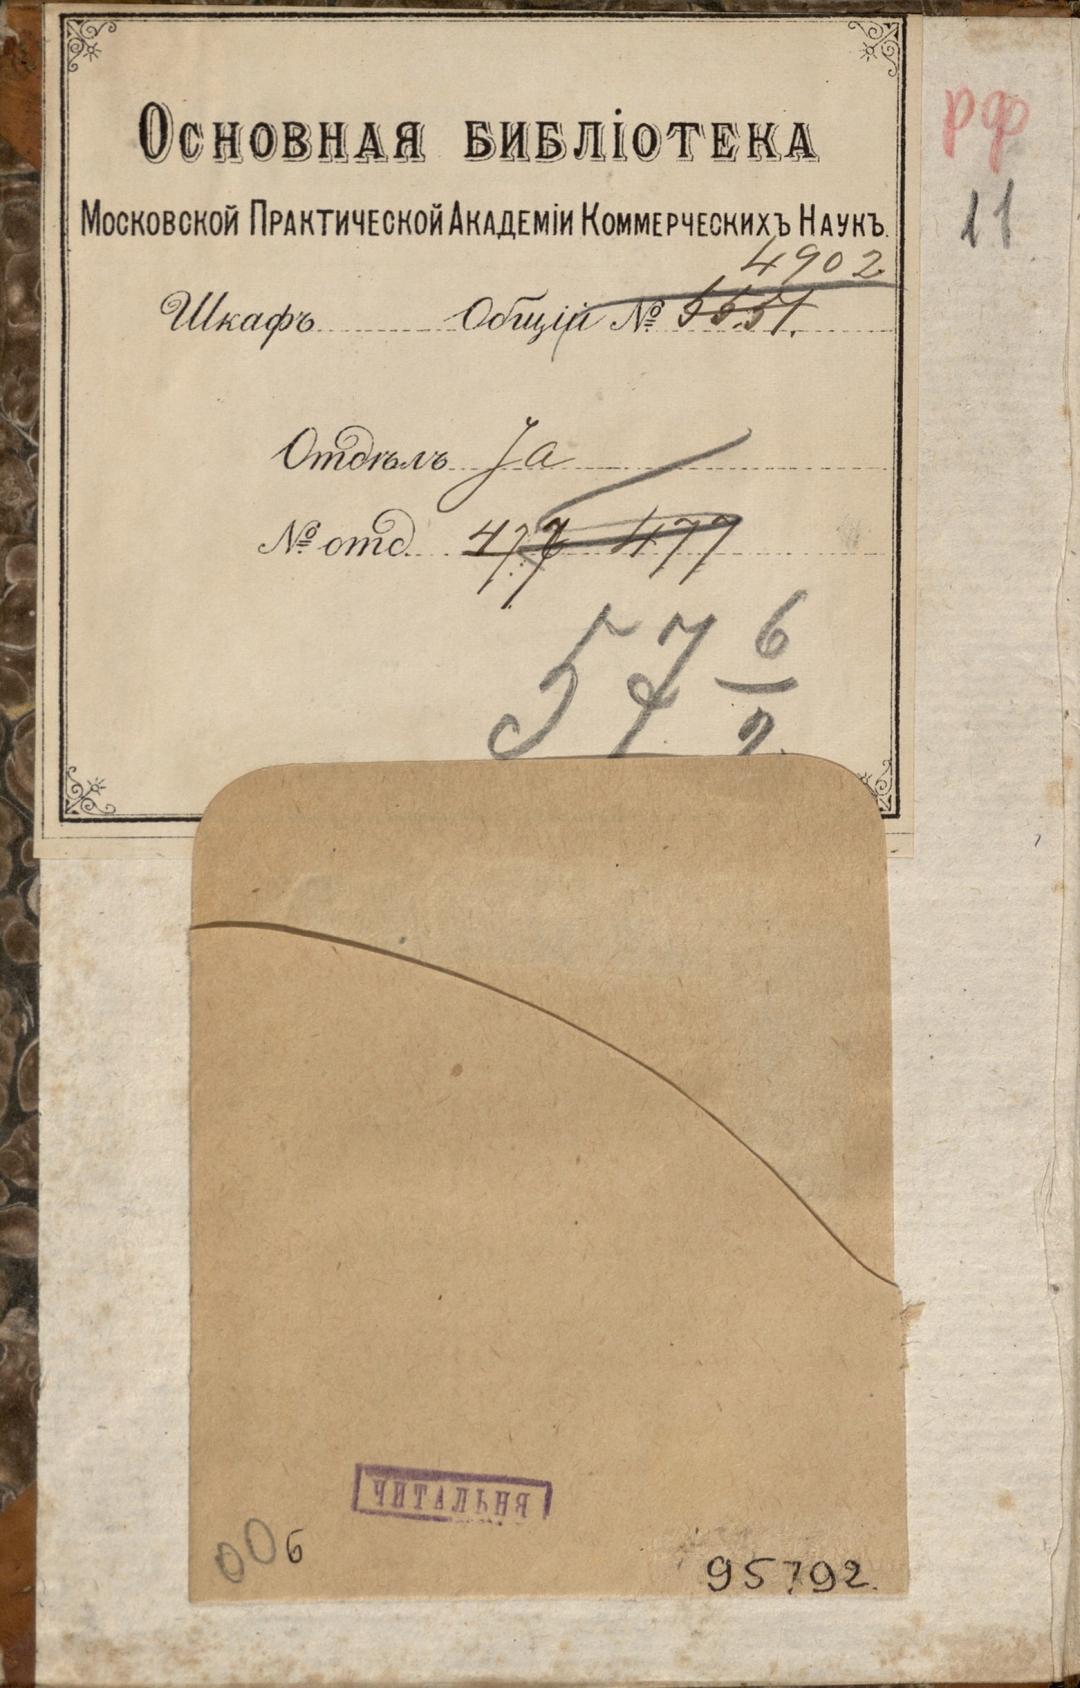 Основная библіотека
Московской Практической Академіи Коммерческихъ Наукъ.
4902
Шкафъ Общій № 5551.
Отдѣлъ Ja
№ отд. 477 477
57 6
2.
рф
11
ЧИТАЛЬНЯ
006
95792.